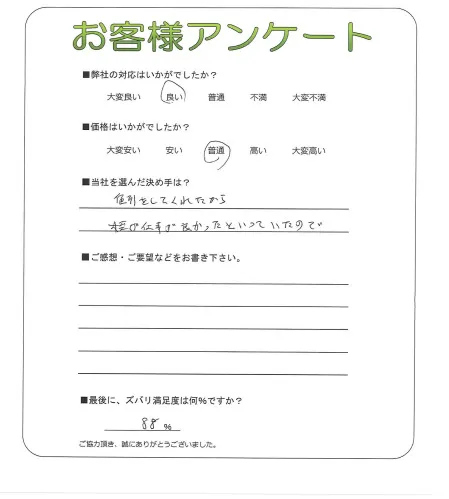 お客様アンケート
■弊社の対応はいかがでしたか？
大変良い 良い 普通 不満 大変不満
■価格はいかがでしたか？
大変安い 安い 普通 高い 大変高い
■当社を選んだ決め手は？
値引をしてくれたから
仕事が良かったといっていたので
■ご感想・ご要望などをお書き下さい。
■最後に、ズバリ満足度は何％ですか？
88 ％
ご協力頂き、誠にありがとうございました。